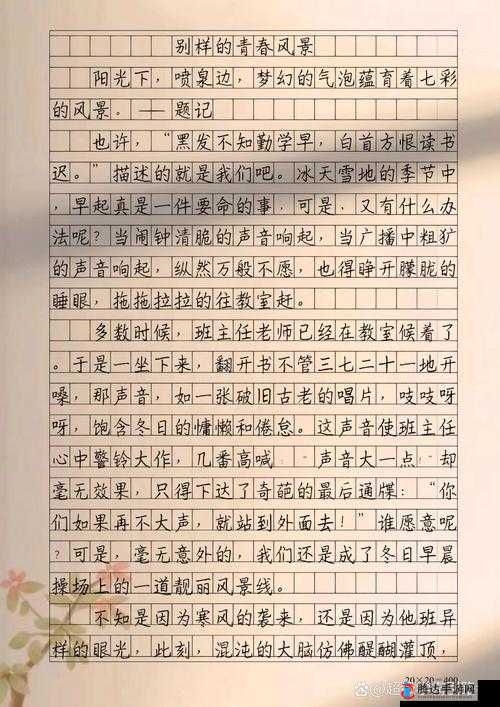 别样的青春风景
阳光下，喷泉边，梦幻的气泡蕴育着七彩
的风景。——题记
也许，“黑发不知勤学早，白首方恨读书
迟。”描述的就是我们吧。冰天雪地的季节中
，早起真是一件要命的事，可是，又有什么办
法呢？当闹钟清脆的声音响起，当广播中粗犷
的声音响起，纵然万般不愿，也得睁开朦胧的
睡眼，拖拖拉拉的往教室赶。
多数时候，班主任老师已经在教室候着了
。于是一坐下来，翻开书不管三七二十一地开
嗓，那声音，如一张破旧古老的唱片，吱吱呀
呀，饱含冬日的慵懒和倦怠。这声音使班主任
心中警铃大作，几番高喊 声音大一点 却
毫无效果，只得下达了奇葩的最后通牒：“你
们如果再不大声，就站到外面去！”谁愿意呢
？可是，毫无意外的，我们还是成了冬日早晨
操场上的一道靓丽风景线。
不知是因为寒风的袭来，还是因为他班异
样的眼光，此刻，混沌的大脑仿佛醍醐灌顶，
20×20=400
腾达手游网